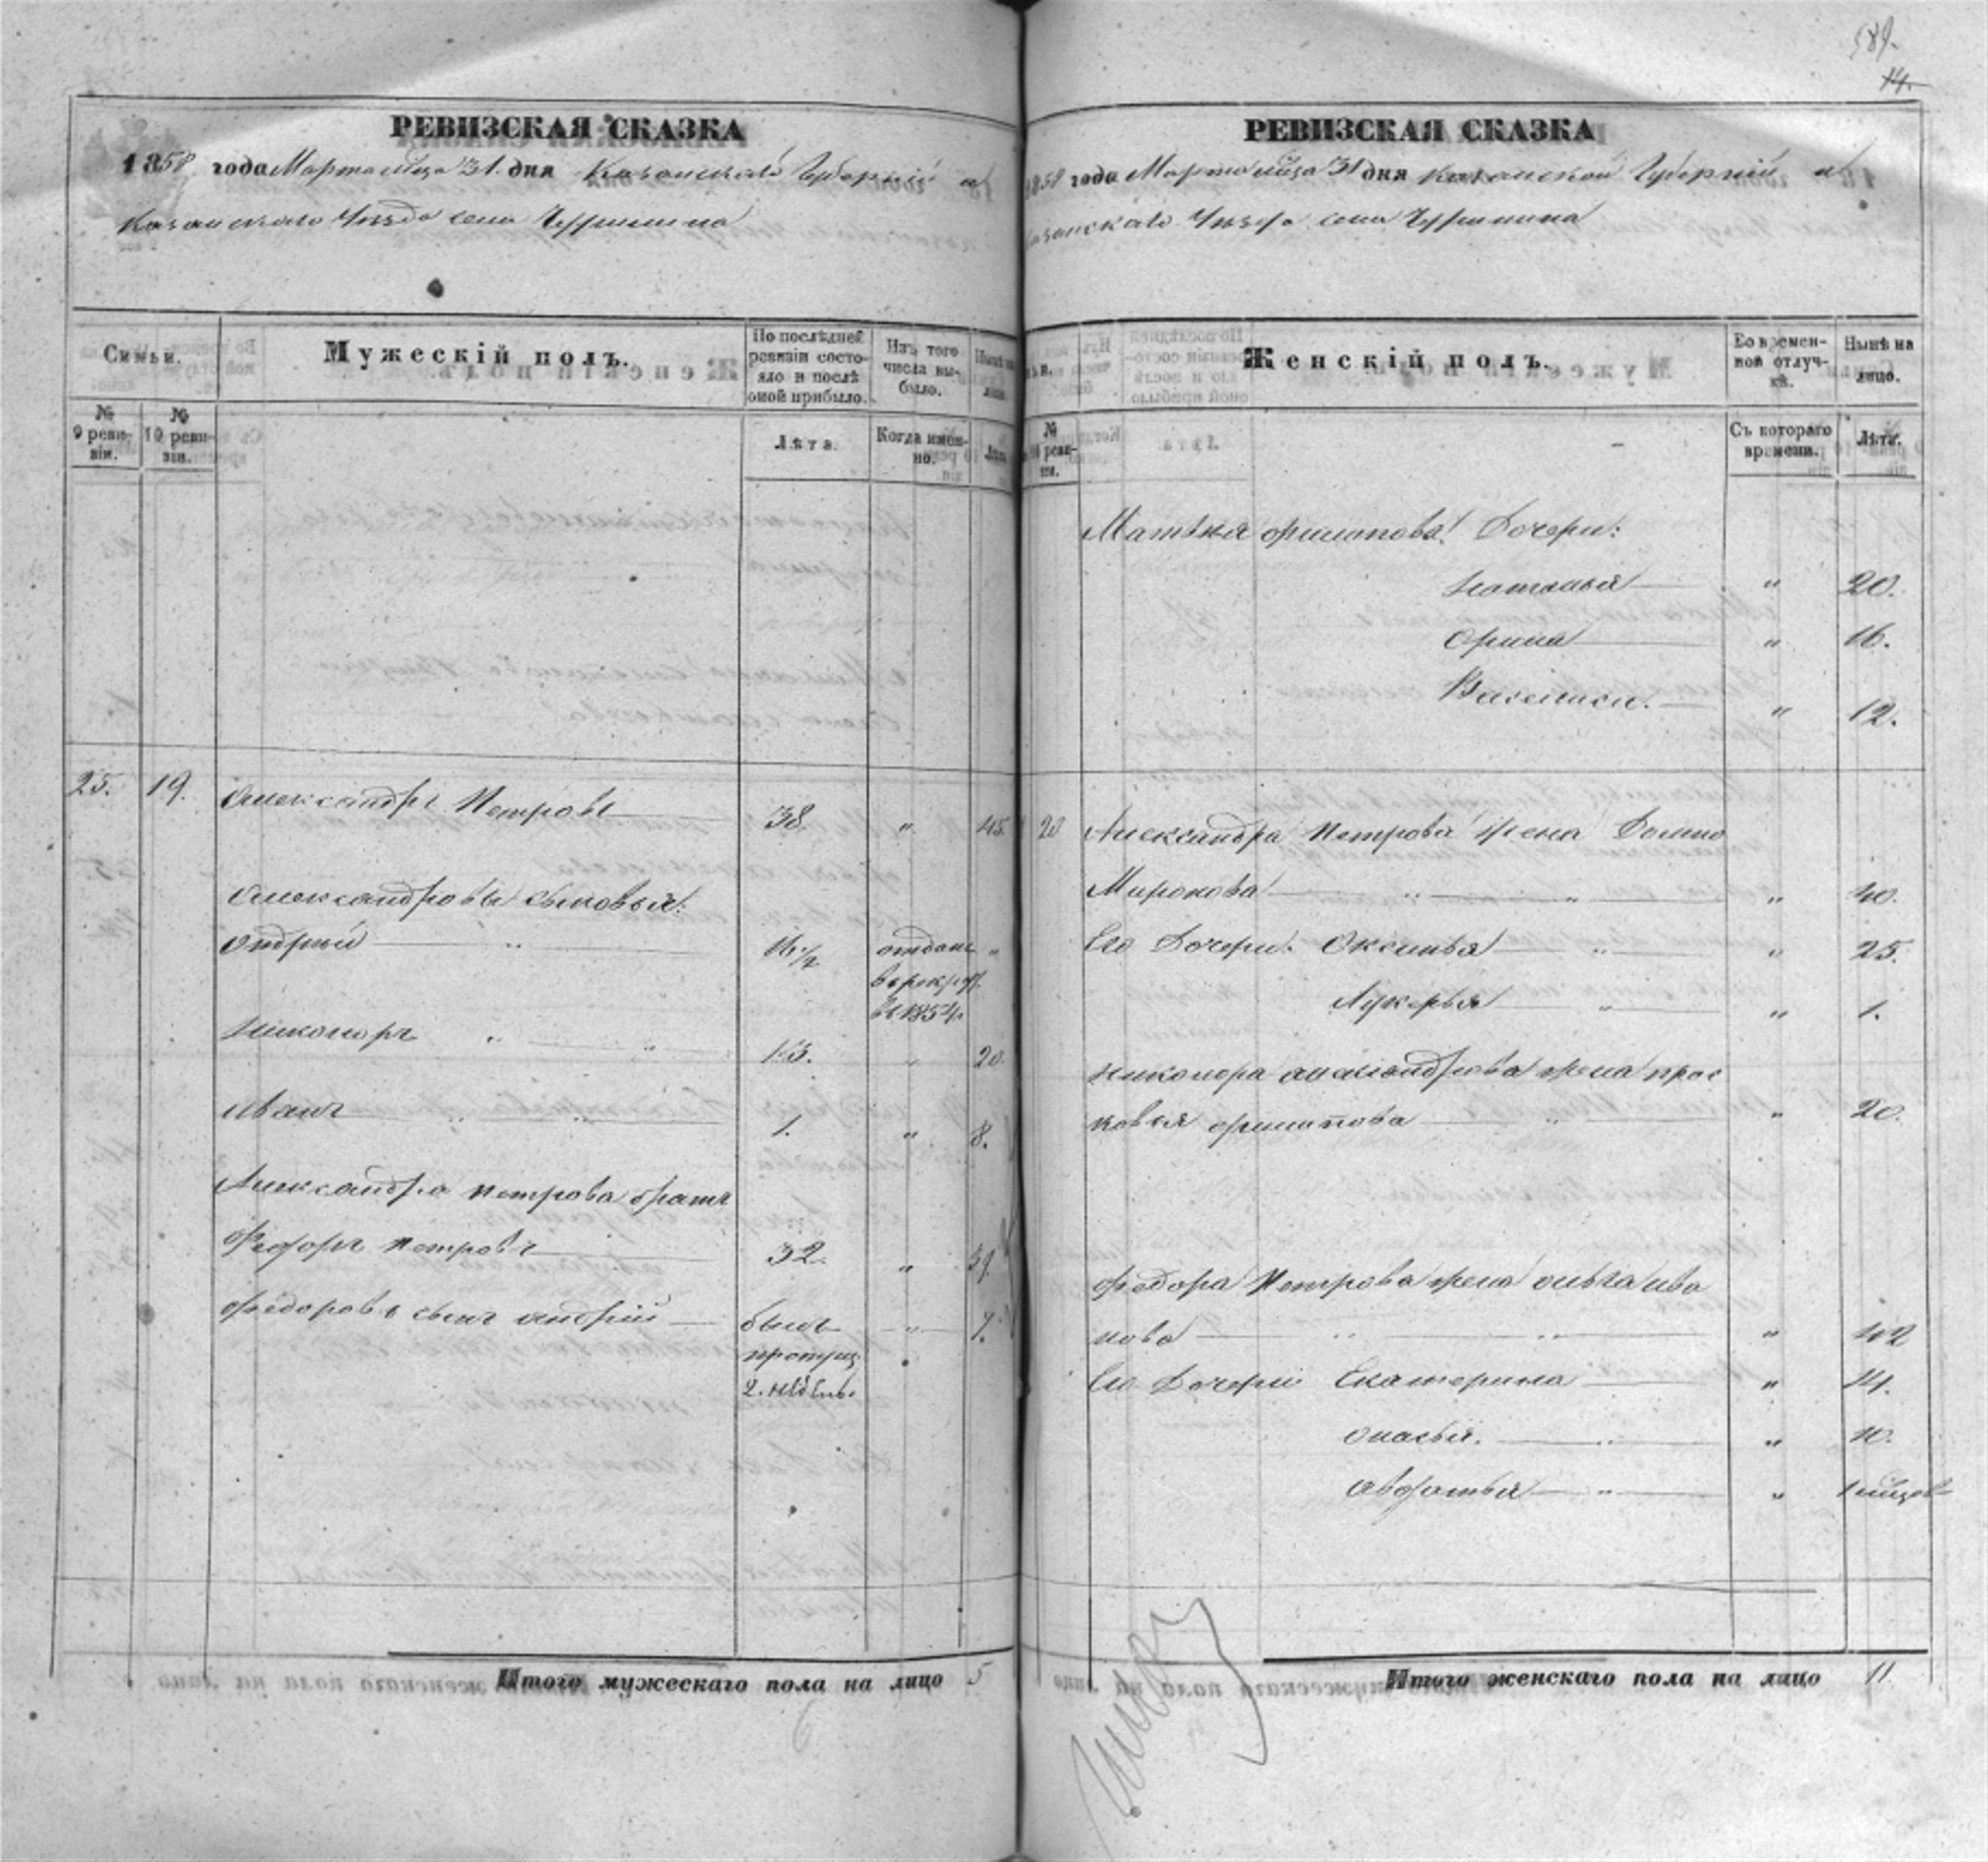 РЕВИЗСКАЯ СКАЗКА
1858 года Марта м҃ца 31. дня Казанской Губернiи и
Казанскаго Уѣзда села
Семьи.
Мужескiй полъ.
По послѣдней ревизiи состояло и послѣ оной прибыло.
Изъ того числа выбыло.
Нынѣ на лицо.
№ 9 ревизiи.
№ 10 ревизiи.
Лѣта.
Когда именно.
Лѣта
25. 19. Александръ Петровъ 38. " 45.
Александровы сыновья:
Андрей 16½ отданъ "
в рекру.
въ 1854.
Никоноръ 13. " 20.
Иванъ 1. " 8.
Александра Петрова братъ
Федоръ Петровъ 32. " 39.
Федоровъ сынъ Андрей былъ " 7.
пропущ.
2.
Итого мужескаго пола на лицо 5
6
589.
14.
РЕВИЗСКАЯ СКАЗКА
1858 года Марта м҃ца 31 дня Казанской Губернiи и
Казанскаго Уѣзда села
Женскiй полъ.
Во временной отлучкѣ.
Нынѣ на лицо.
№ ревизiи.
Съ котораго времени.
Лѣта.
Матвея Филипова Дочери:
Наталья " 20.
Орина " 16.
Василиса. " 12.
20 Александра Петрова жена Домна
Миронова " 40.
Его Дочери: Оксинья " 25.
Лукерья " 1.
Никонора Александрова жена Прас
ковья Филипова " 20.
Федора Петрова жена Ольга Ива
нова " 42
Его Дочери Екатерина " 14.
Онасья. " 10.
Авдотья " 1
Итого женскаго пола на лицо 11